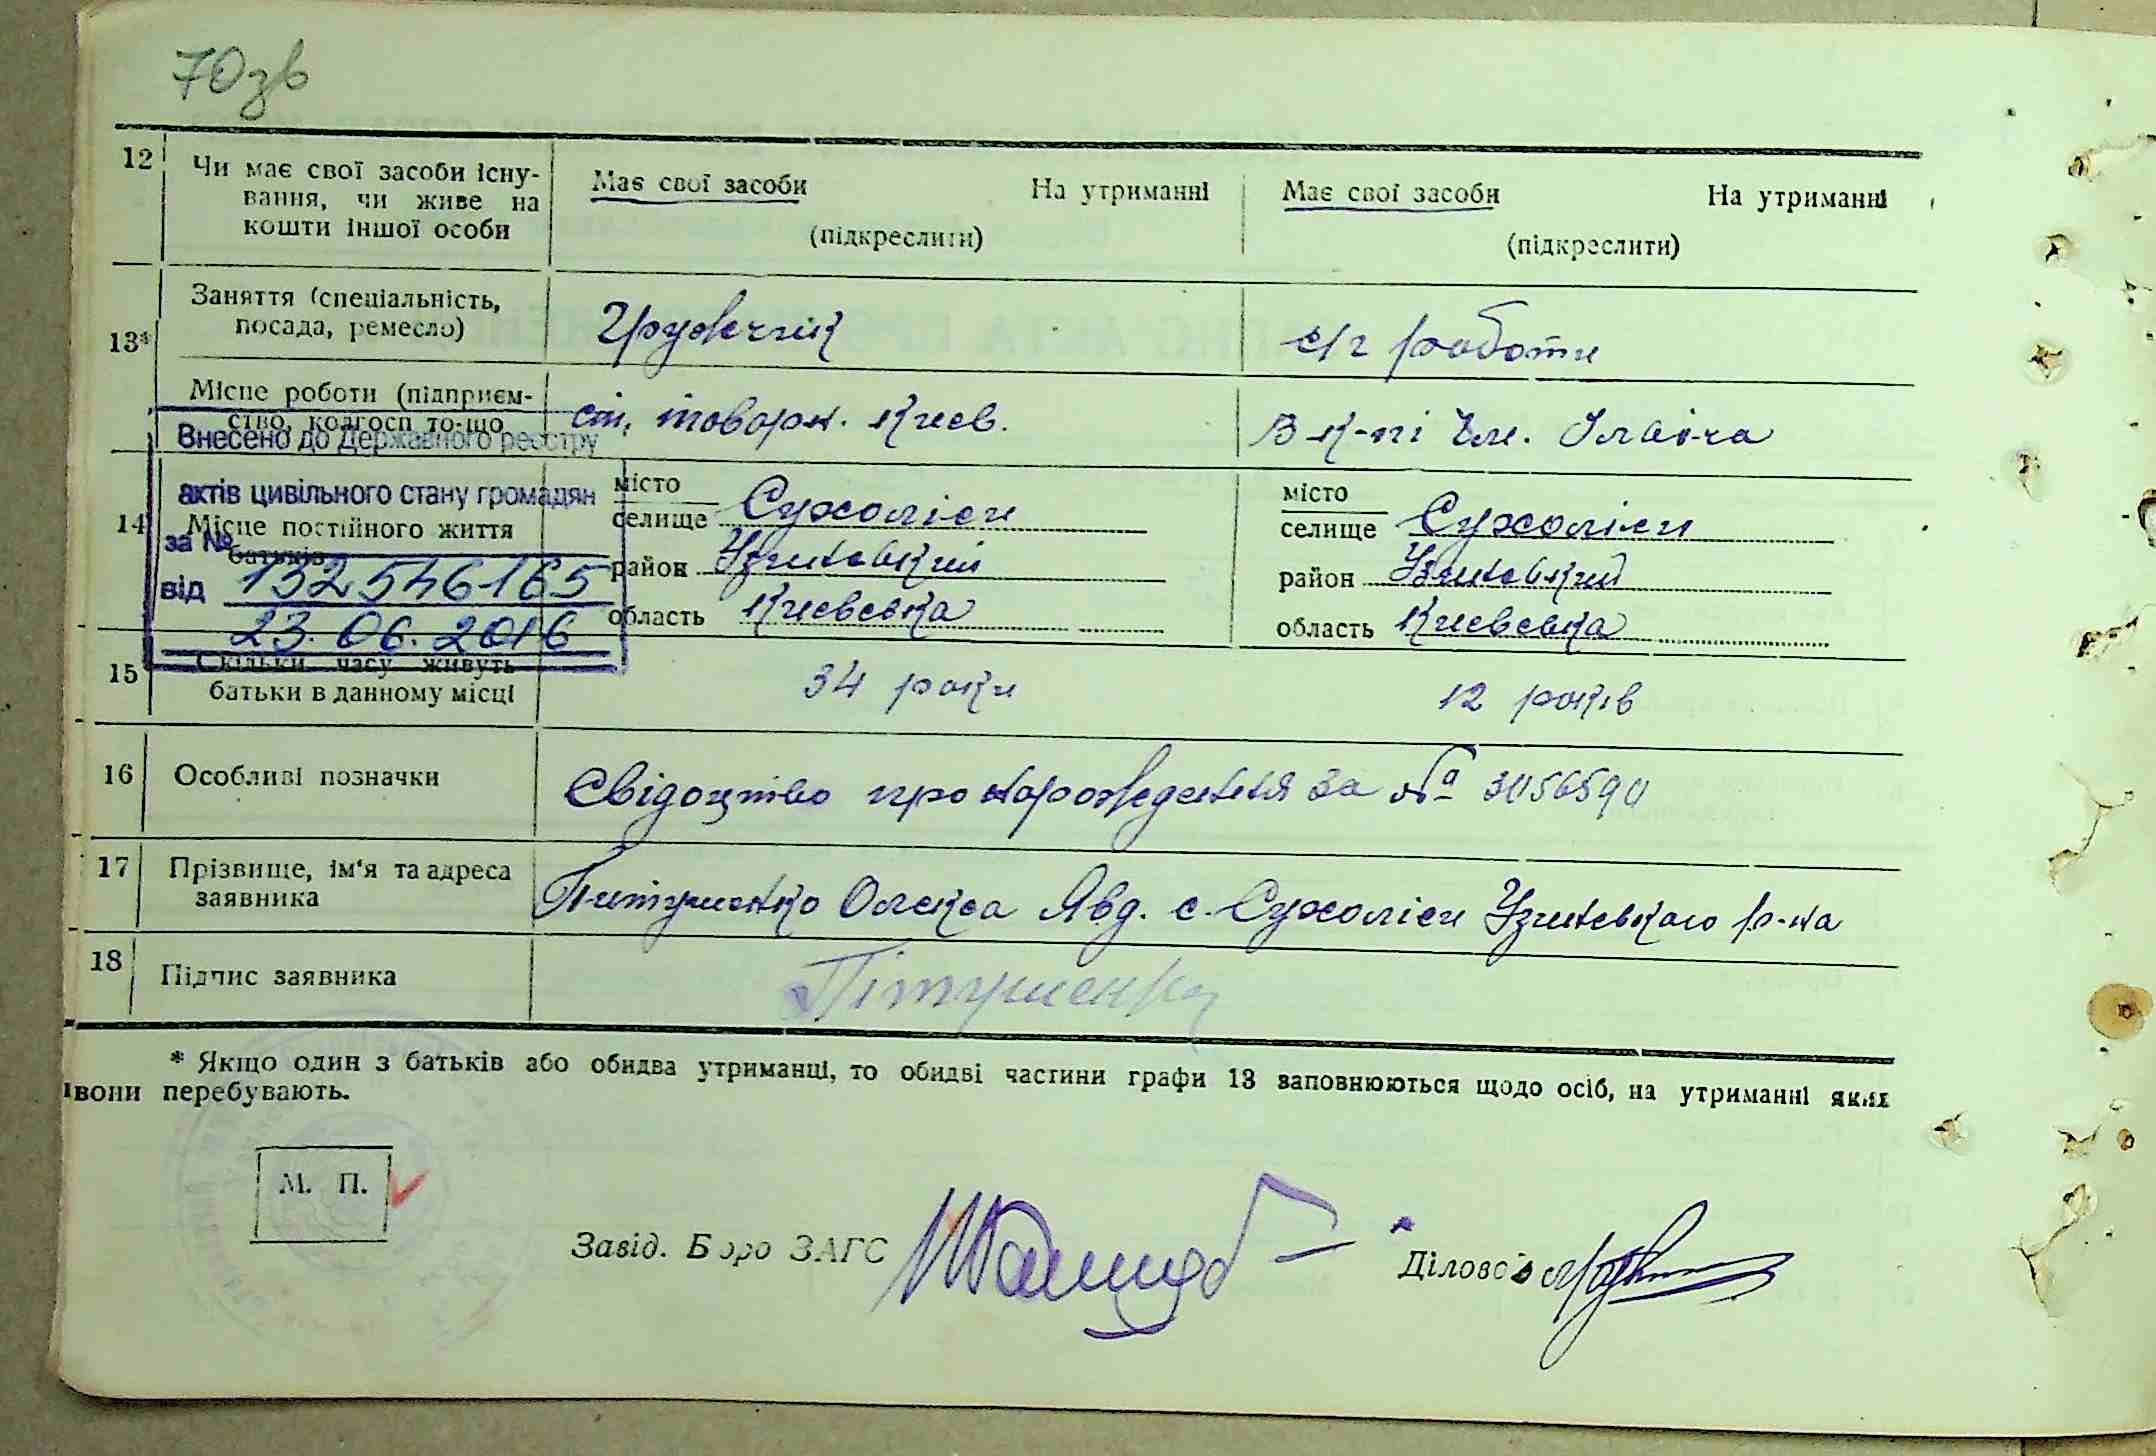 70зв
12 Чи має свої засоби існу-
вання, чи живе на
кошти іншої особи
Має свої засоби На утриманні
(підкреслити)
Має свої засоби На утриманні
(підкреслити)
13* Заняття (спеціальність,
посада, ремесло)
Грузчик
с/г роботи
Місце роботи (підприєм-
ство, колгосп то-що
ст. товарн. Киев.
В к-пі Ім. Ілліча
Внесено до Державного реєстру
актів цивільного стану громадян
за № 132546165
від 23.06.2016
14 Місце постійного життя
батьків
місто
селище Сухоліси
район Узинський
область Киевська
місто
селище Сухоліси
район Узинський
область Киевська
15 Скільки часу живуть
батьки в данному місці
34 роки
12 років
16 Особливі позначки
Свідоцтво про народження за № 3056590
17 Прізвище, ім'я та адреса
заявника
Пітушенко Олекса Явд. с. Сухоліси Узинського р-на
18 Підпис заявника
Пітушенко
* Якщо один з батьків або обидва утриманці, то обидві частини графи 13 заповнюються щодо осіб, на утриманні яких
вони перебувають.
М. П.
Завід. Бюро ЗАГС
Діловод